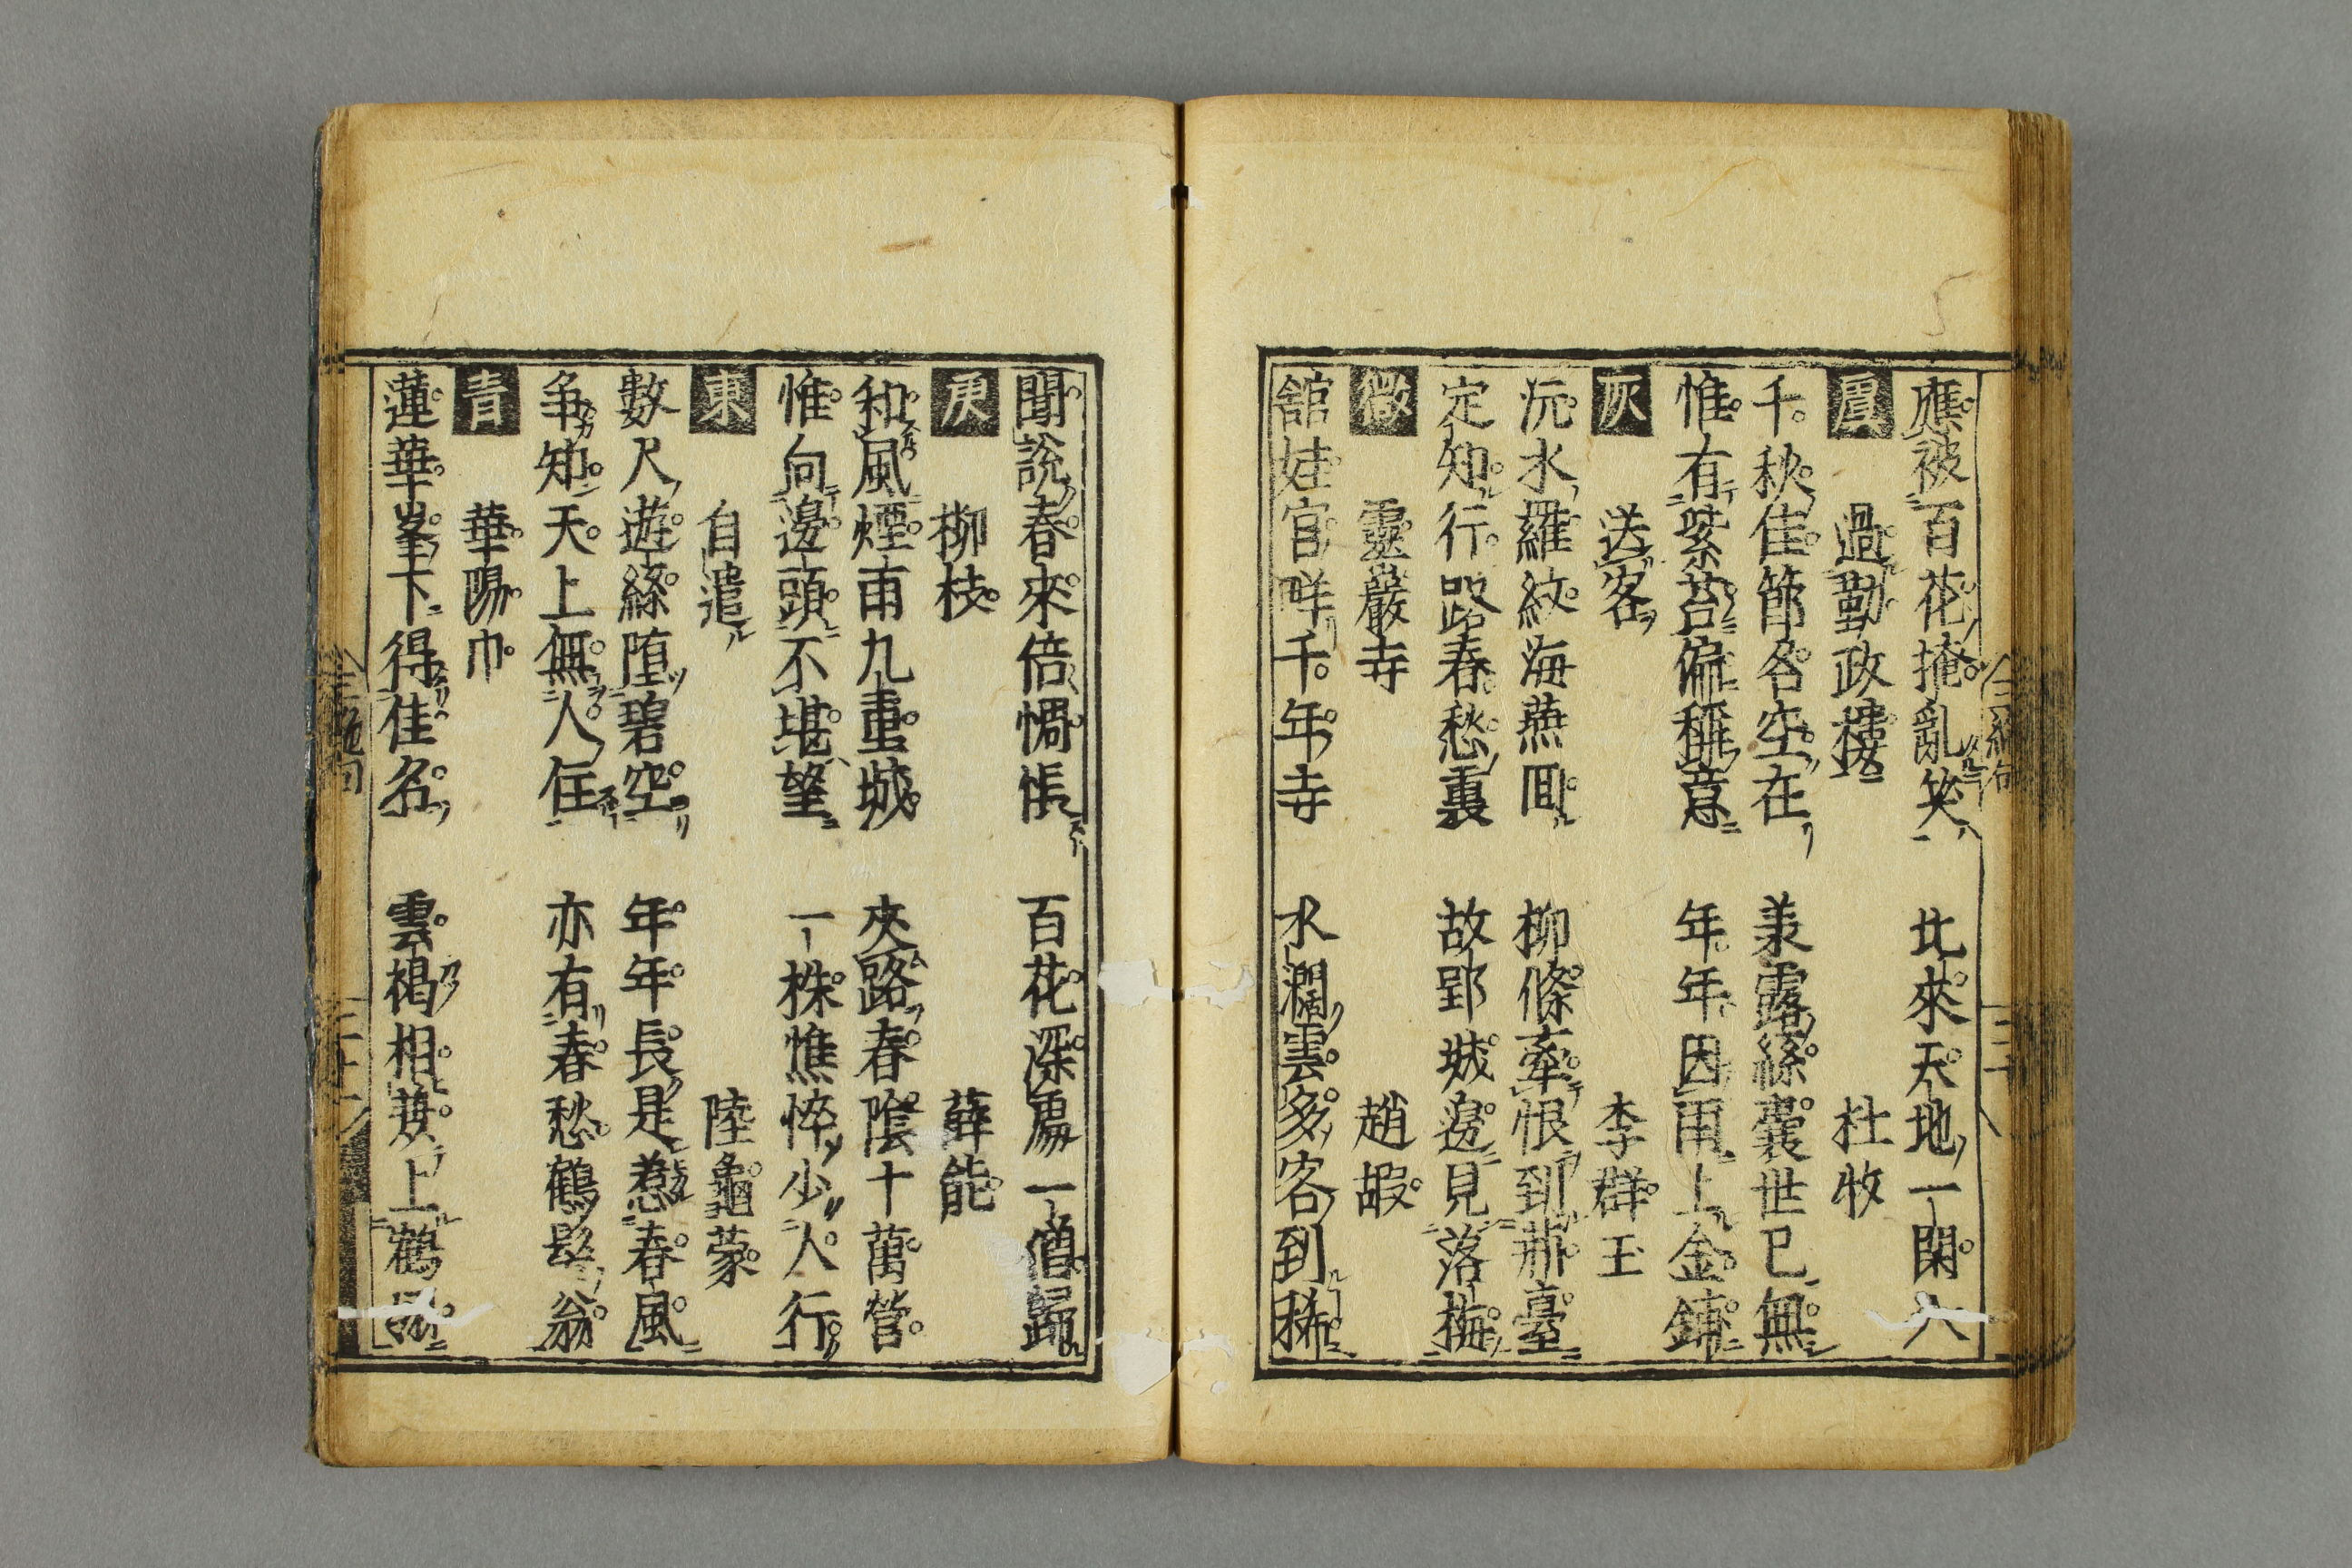 應被百花掩亂笑　比來天地一閑人
虞　過勤政樓　杜牧
千秋佳節名空在　羕露絲囊世已無
惟有紫苔偏稱意　年年因雨上金鋪
灰　送客　李群玉
沅水羅紋海燕囬　柳條牽恨到荊臺
定知行路春愁裏　故郢城邊見落梅
微　靈巖寺　趙嘏
舘娃宮畔千年寺　水濶雲多客到稀
聞說春來倍惆悵　百花深處一僧歸
庚　柳枝　薛能
和風煙雨九重城　夾路春陰十萬營
惟向邊頭不堪望　一株憔悴少人行
東　自遣　陸龜蒙
數尺遊絲墮碧空　年年長是惹春風
争知天上無人住　亦有春愁鶴髮翁
青　華陽巾
蓮華峯下得佳名　雲褐相兼上鶴翎